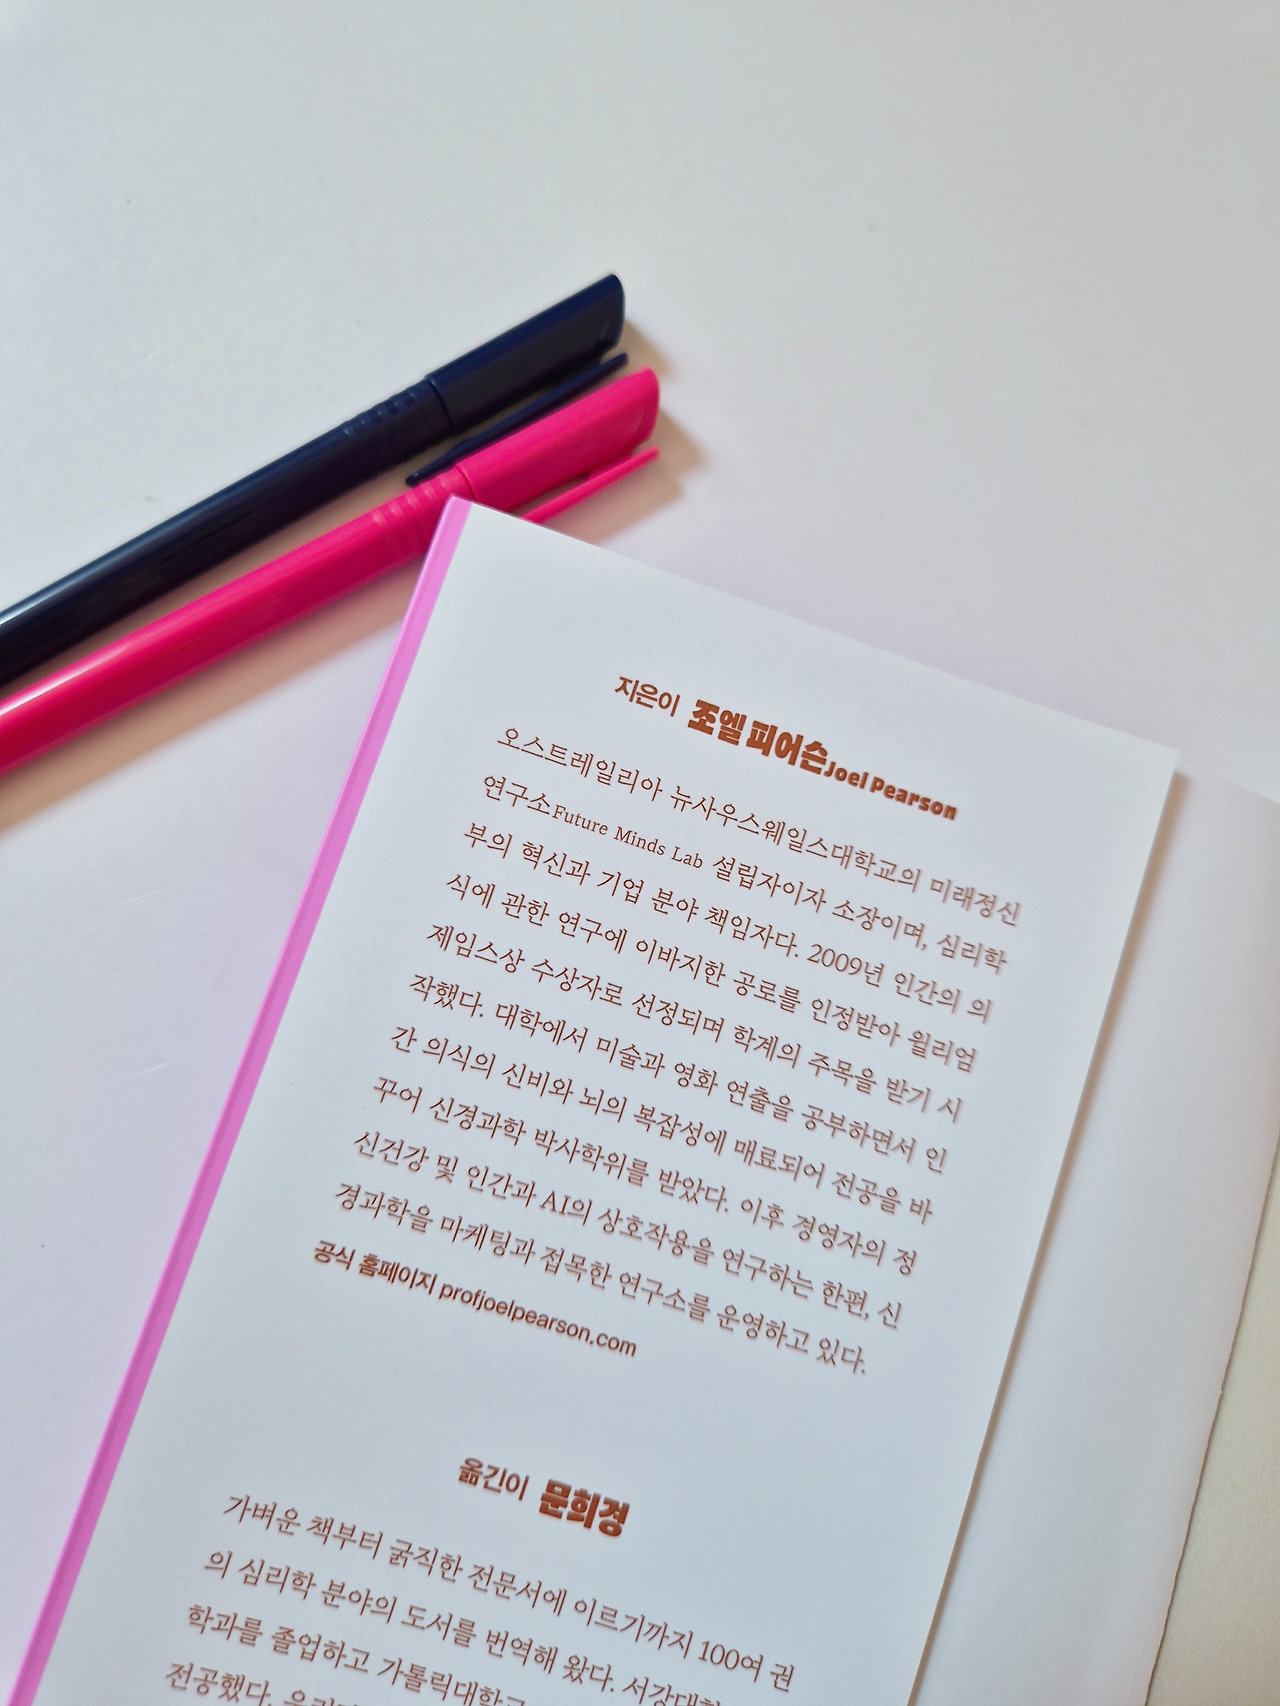 지은이 조엘 피어슨Joel Pearson
오스트레일리아 뉴사우스웨일스대학교의 미래정신
연구소Future Minds Lab 설립자이자 소장이며, 심리학
부의 혁신과 기업 분야 책임자다. 2009년 인간의 의
식에 관한 연구에 이바지한 공로를 인정받아 윌리엄
제임스상 수상자로 선정되며 학계의 주목을 받기 시
작했다. 대학에서 미술과 영화 연출을 공부하면서 인
간 의식의 신비와 뇌의 복잡성에 매료되어 전공을 바
꾸어 신경과학 박사학위를 받았다. 이후 경영자의 정
신건강 및 인간과 AI의 상호작용을 연구하는 한편, 신
경과학을 마케팅과 접목한 연구소를 운영하고 있다.
공식 홈페이지 profjoelpearson.com
옮긴이 문희경
가벼운 책부터 굵직한 전문서에 이르기까지 100여 권
의 심리학 분야의 도서를 번역해 왔다. 서강대학
학과를 졸업하고 가톨릭대학교
전공했다.